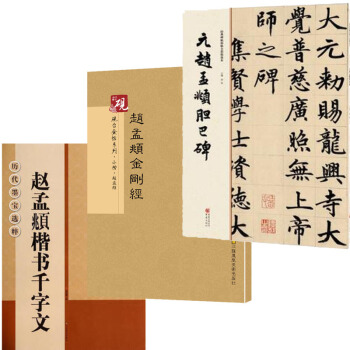 大元勅賜龍興寺大
覺普慈廣照無上帝
師之碑
集賢學士資德大
元趙孟頫胆巴碑
砚
趙孟頫金剛經
历代墨宝选粹
赵孟頫楷书千字文